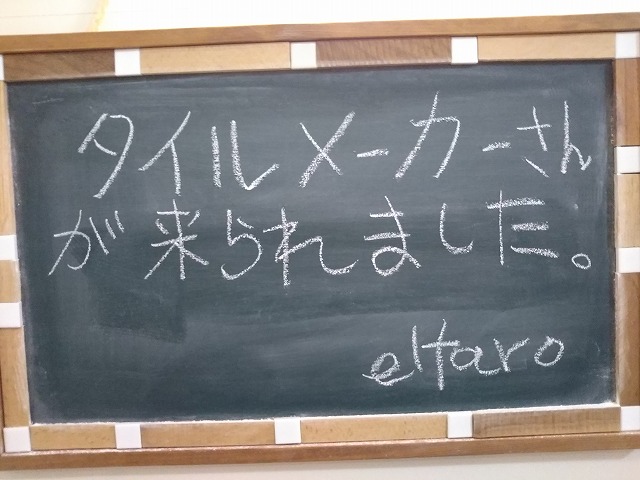 タイルメーカーさん
が来られました。
eltaro